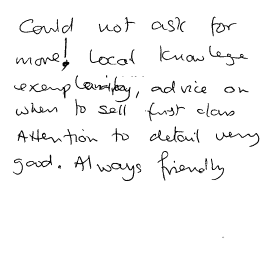 Could not ask for
more! Local knowlege
exemplary, advice on
when to sell first class
Attention to detail very
good. Always friendly